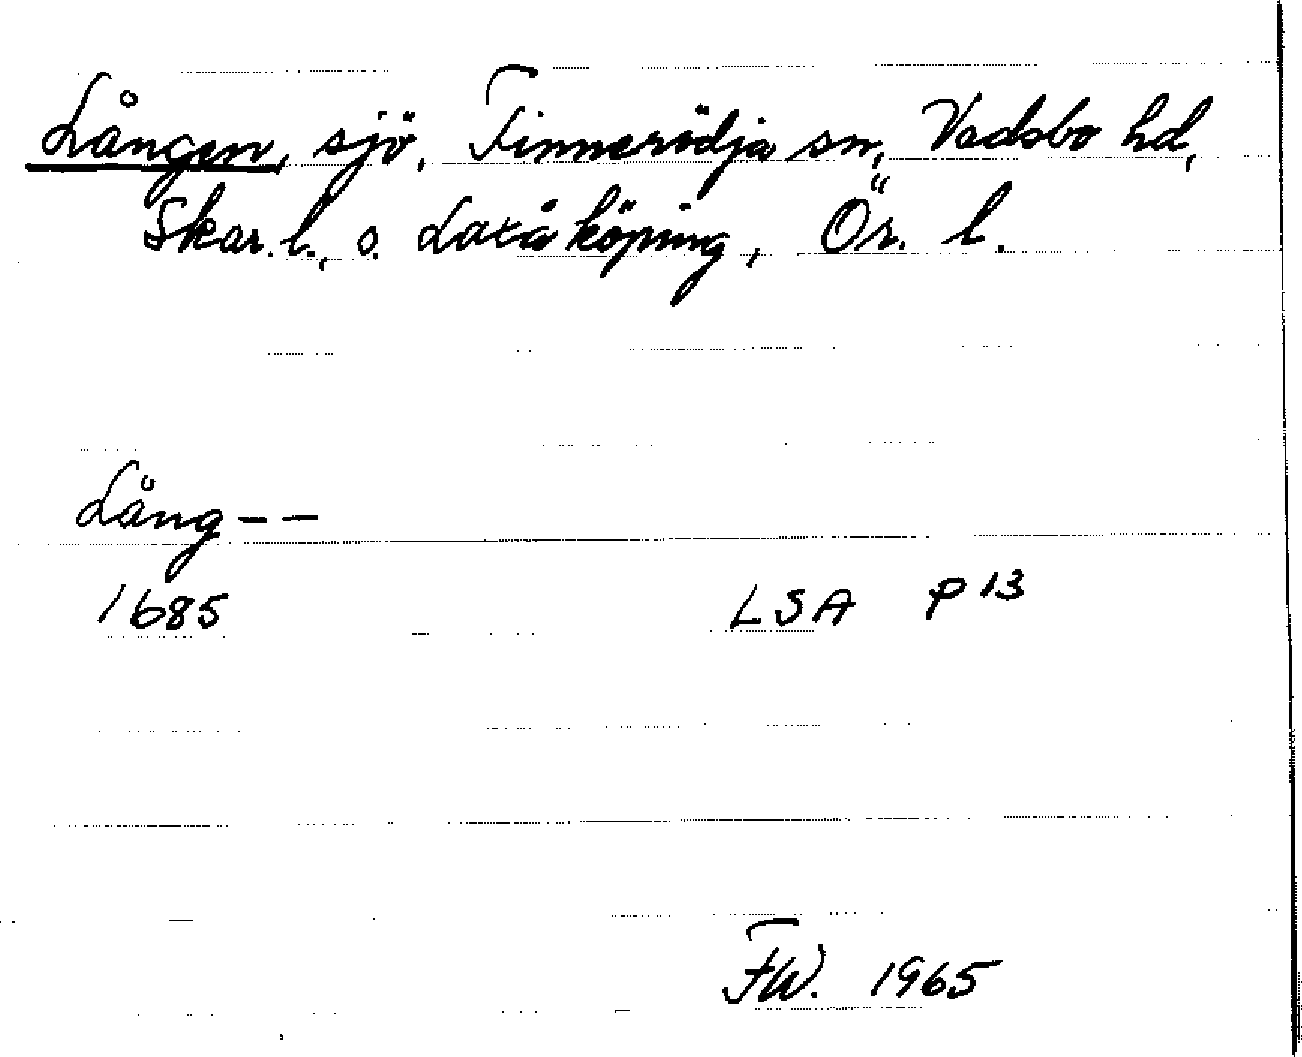 Lången, sjö, Finnerödja sn, Vadsbo hd,
Skar. l., o. Laxå köping, Ör. l.
Lång--
1685 LSA P 13
FW. 1965